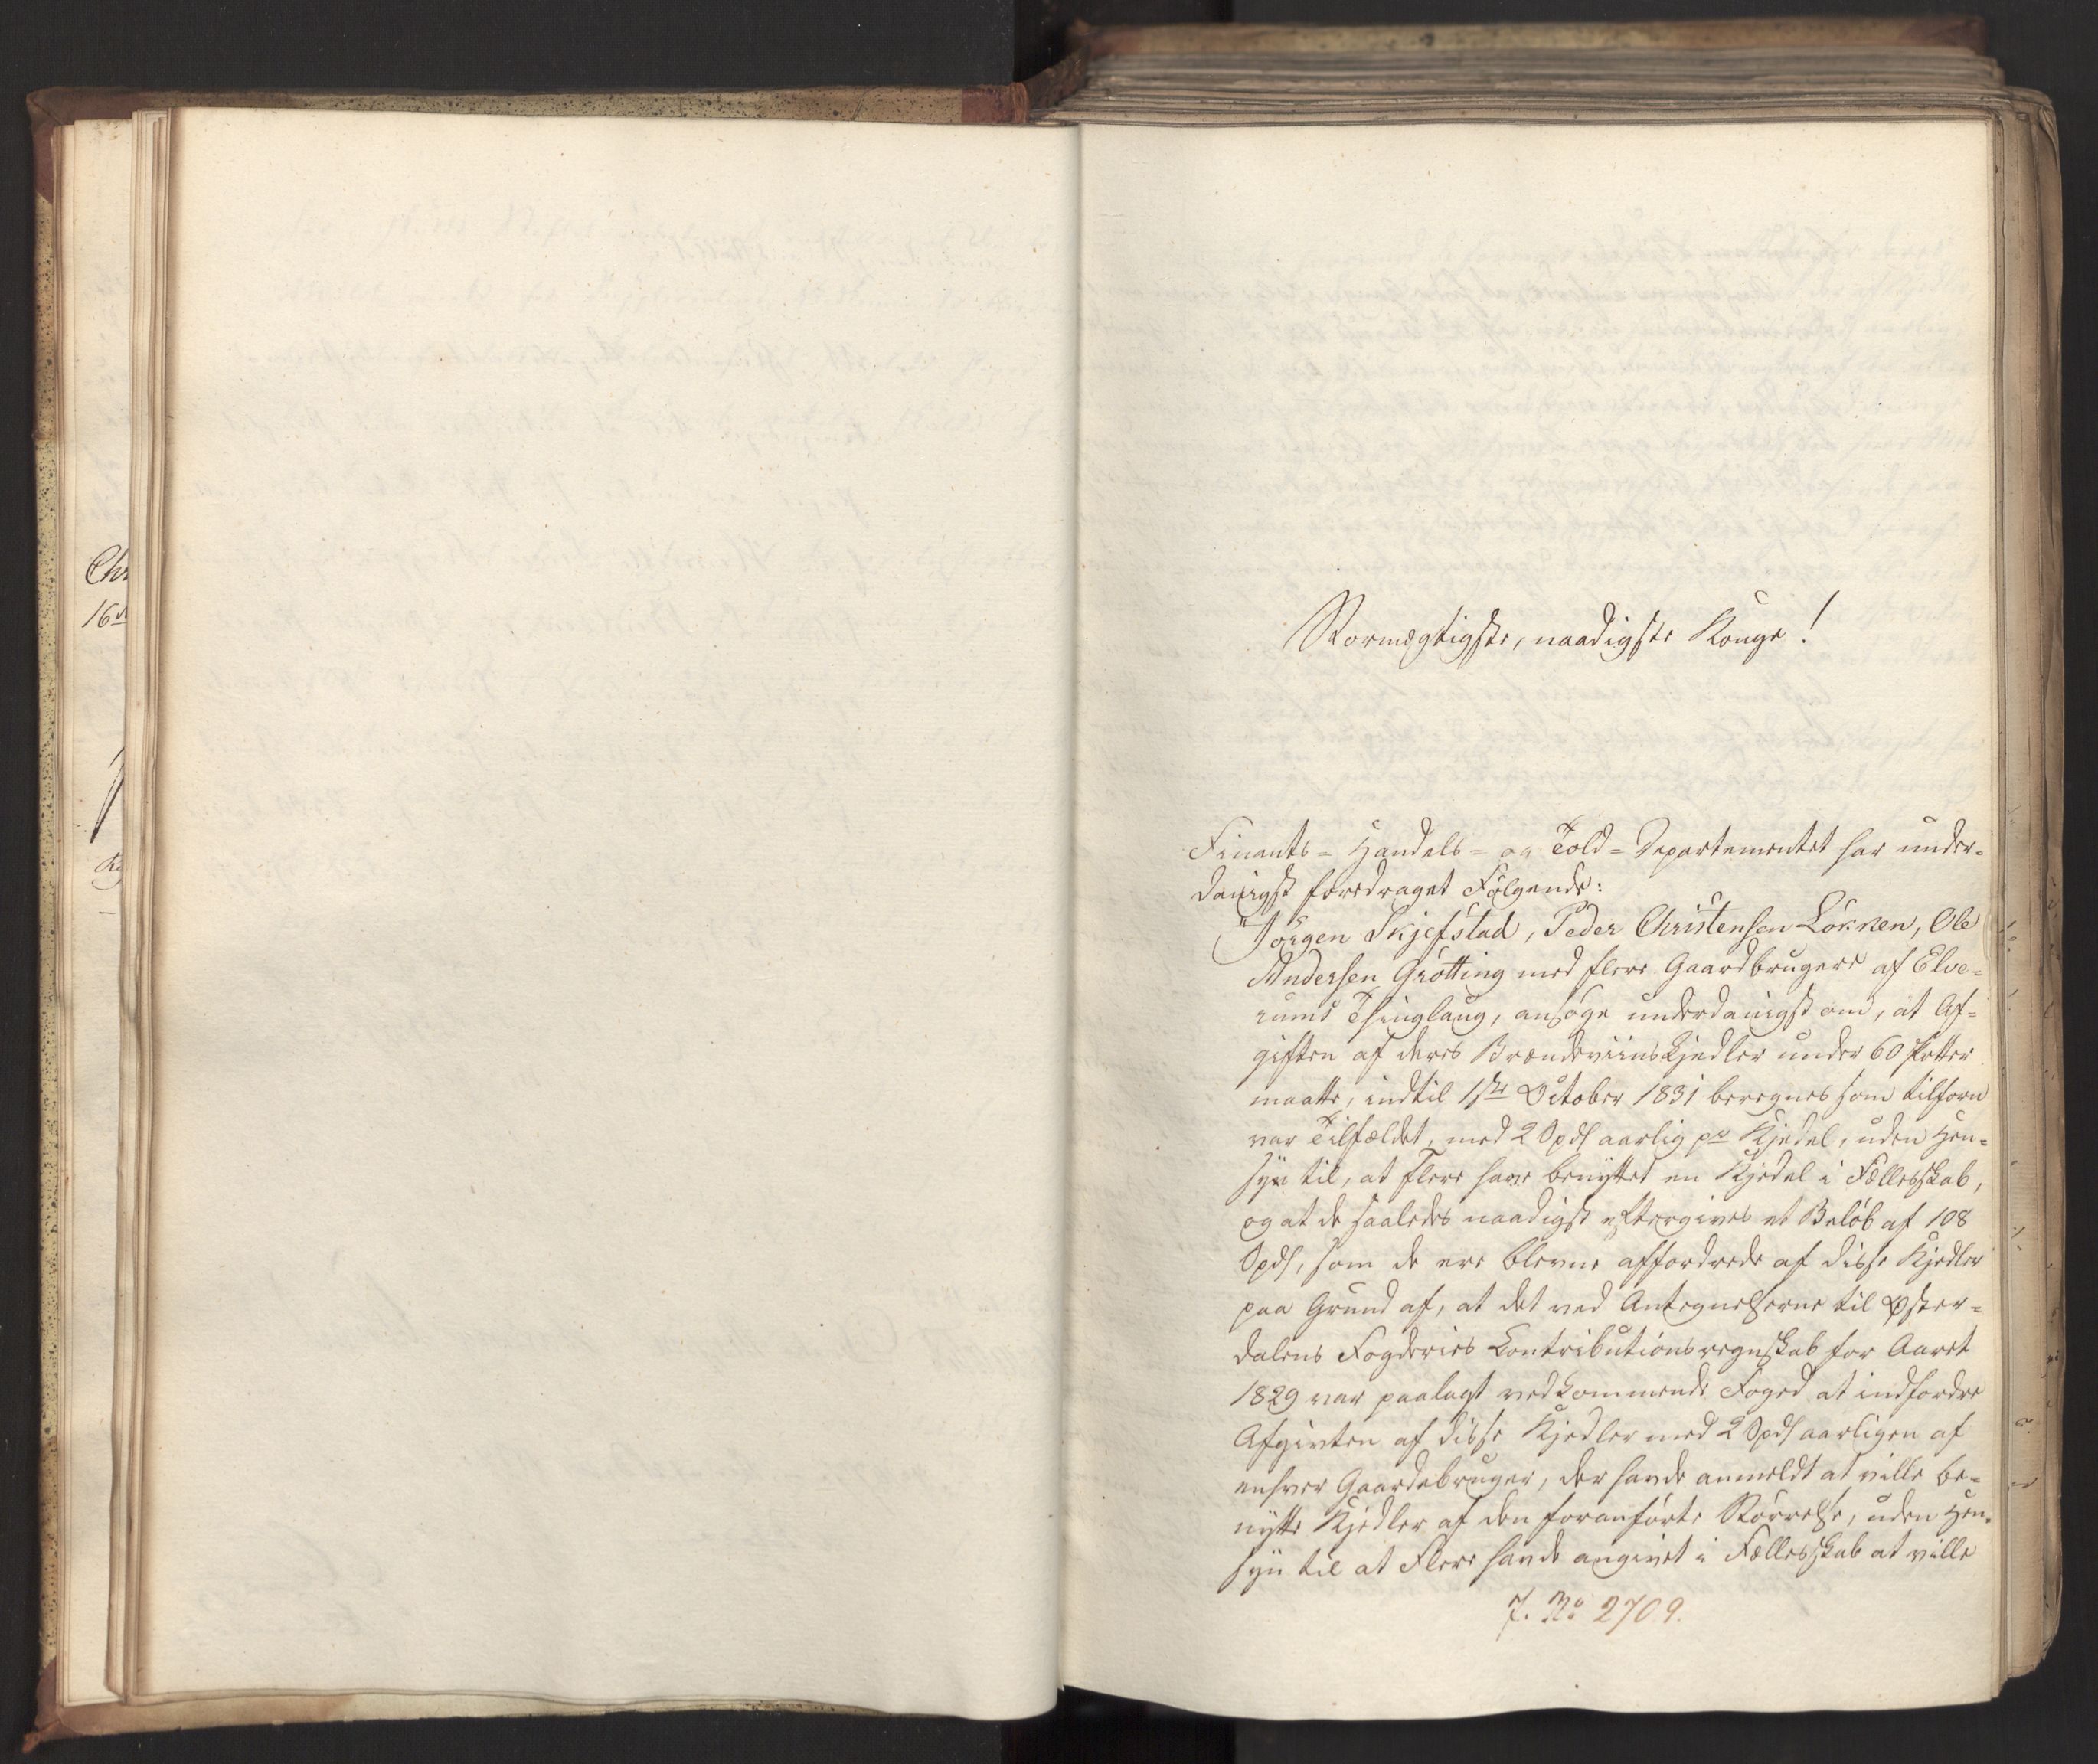 Chr
16de
Stormægtigste, naadigste Konge!
Finants- Handels- og Told-Departementet har under-
danigst foredraget Følgende:
"Jörgen Skjefstad, Peder Christensen Lökken, Ole
Andersen Grötting med flere Gaardbrugere af Elve-
rums Thinglaug, ansøge underdanigst om, at Af-
giften af deres Brændeviinskjedler under 60 Potter
maatte, indtil 1ste October 1831 beregnes som tilforn
var Tilfældet, med 2 Spd aarlig pr Kjedel, uden Hen-
syn til, at flere have benyttet en Kjedel i Fællesskab,
og at de saaledes naadigst eftergives et Beløb af 108
Spd, som de ere blevne affordrede af disse Kjedler
paa Grund af, at det ved Antegnelserne til Øster-
dalens Fogderies Contributionsregnskab for Aaret
1829 var paalagt vedkommende Foged at indfordre
Afgivten af disse Kjedler med 2 Spd aarligen af
enhver Gaardebruger, der havde anmeldt at ville be-
nytte Kjedler af den foranførte Størrelse, uden Hen-
syn til at Flere havde angivet i Fællesskab at ville
J. No 2709.